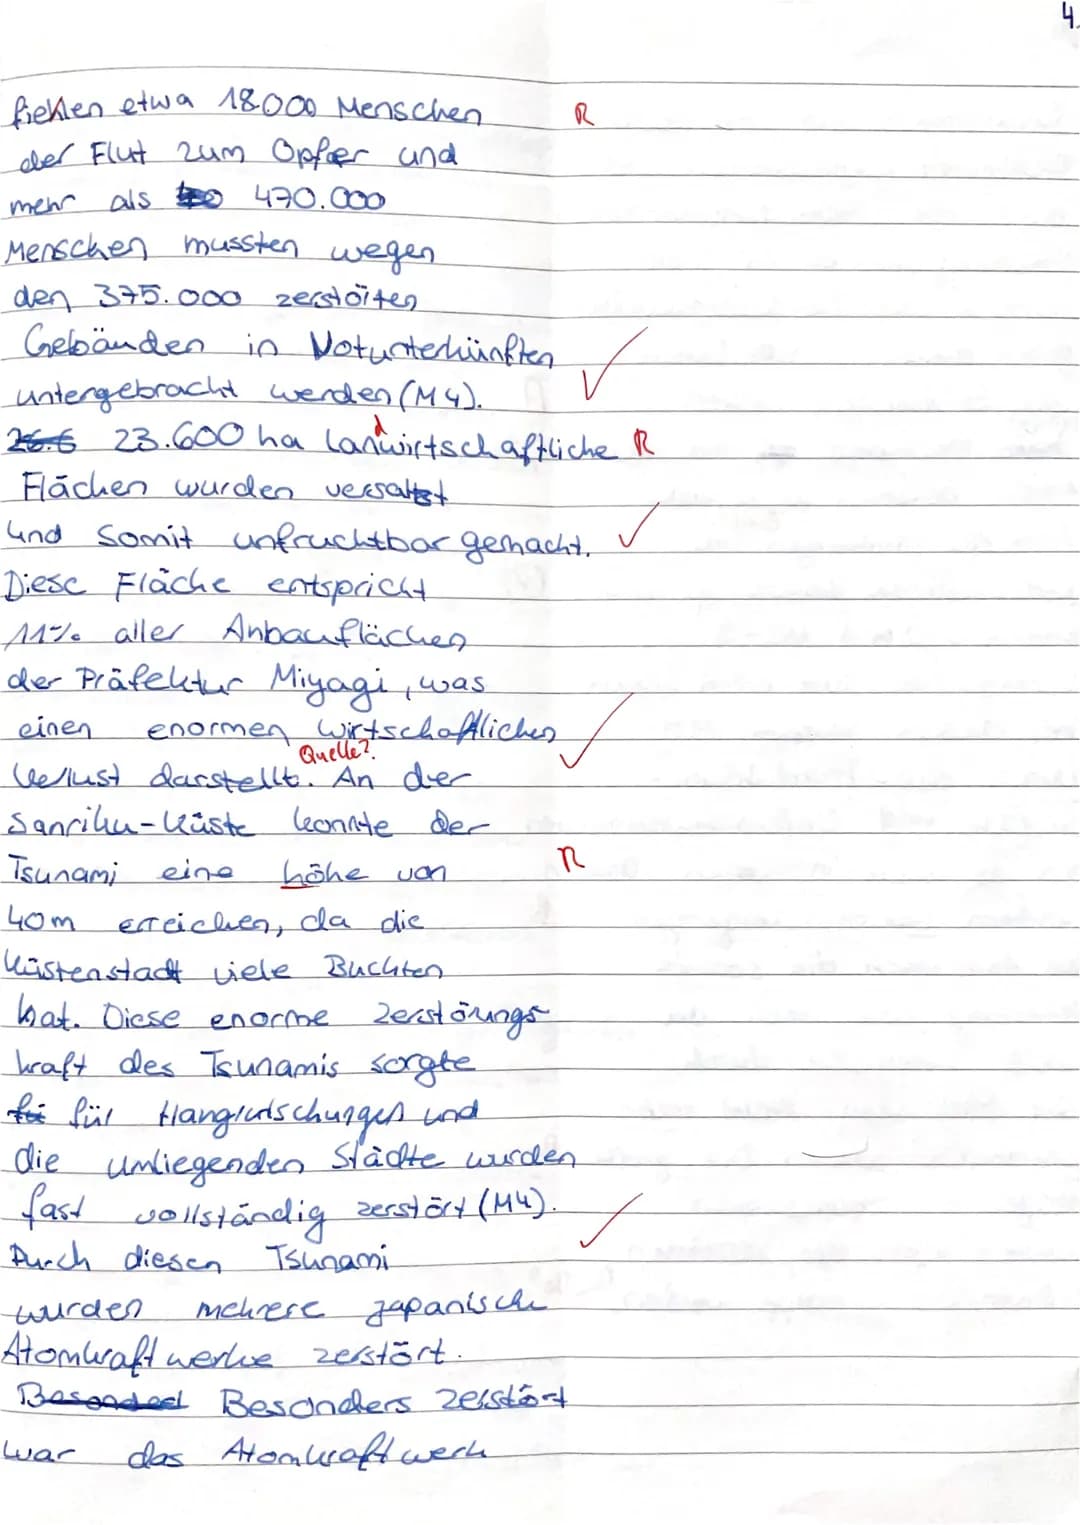 4.
fiehlen etwa 18000 Menschen R
der Flut zum Opfer und
mehr als 470.000
Menschen mussten wegen
den 375.000 zerstörten
Gebäuden in Notunterkünften
untergebracht werden (M4).
23.600 ha landwirtschaftliche R
Flächen wurden versalzt
und somit unfruchtbar gemacht.
Diese Fläche entspricht
11% aller Anbauflächen
der Präfektur Miyagi, was
einen enormen wirtschaftlichen
Quelle?
Verlust darstellt. An der
Sanriku-Küste konnte der
Tsunami eine höhe von R
40m erreichen, da die
Küstenstadt viele Buchten
hat. Diese enorme Zerstörungs-
kraft des Tsunamis sorgte
für Hangrutschungen und
die umliegenden Städte wurden
fast vollständig zerstört (M4).
Durch diesen Tsunami
wurden mehrere japanische
Atomkraftwerke zerstört.
Besonders zerstört
war das Atomkraftwerk